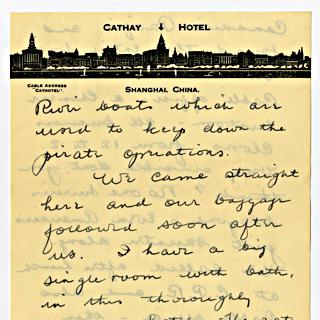 CATHAY HOTEL
CABLE ADDRESS
"CATHOTEL"
SHANGHAI CHINA.
River boats which are
used to keep down the
pirate operations.
We came straight
here and our baggage
followed soon after
us. I have a big
single room with bath,
in this thoroughly